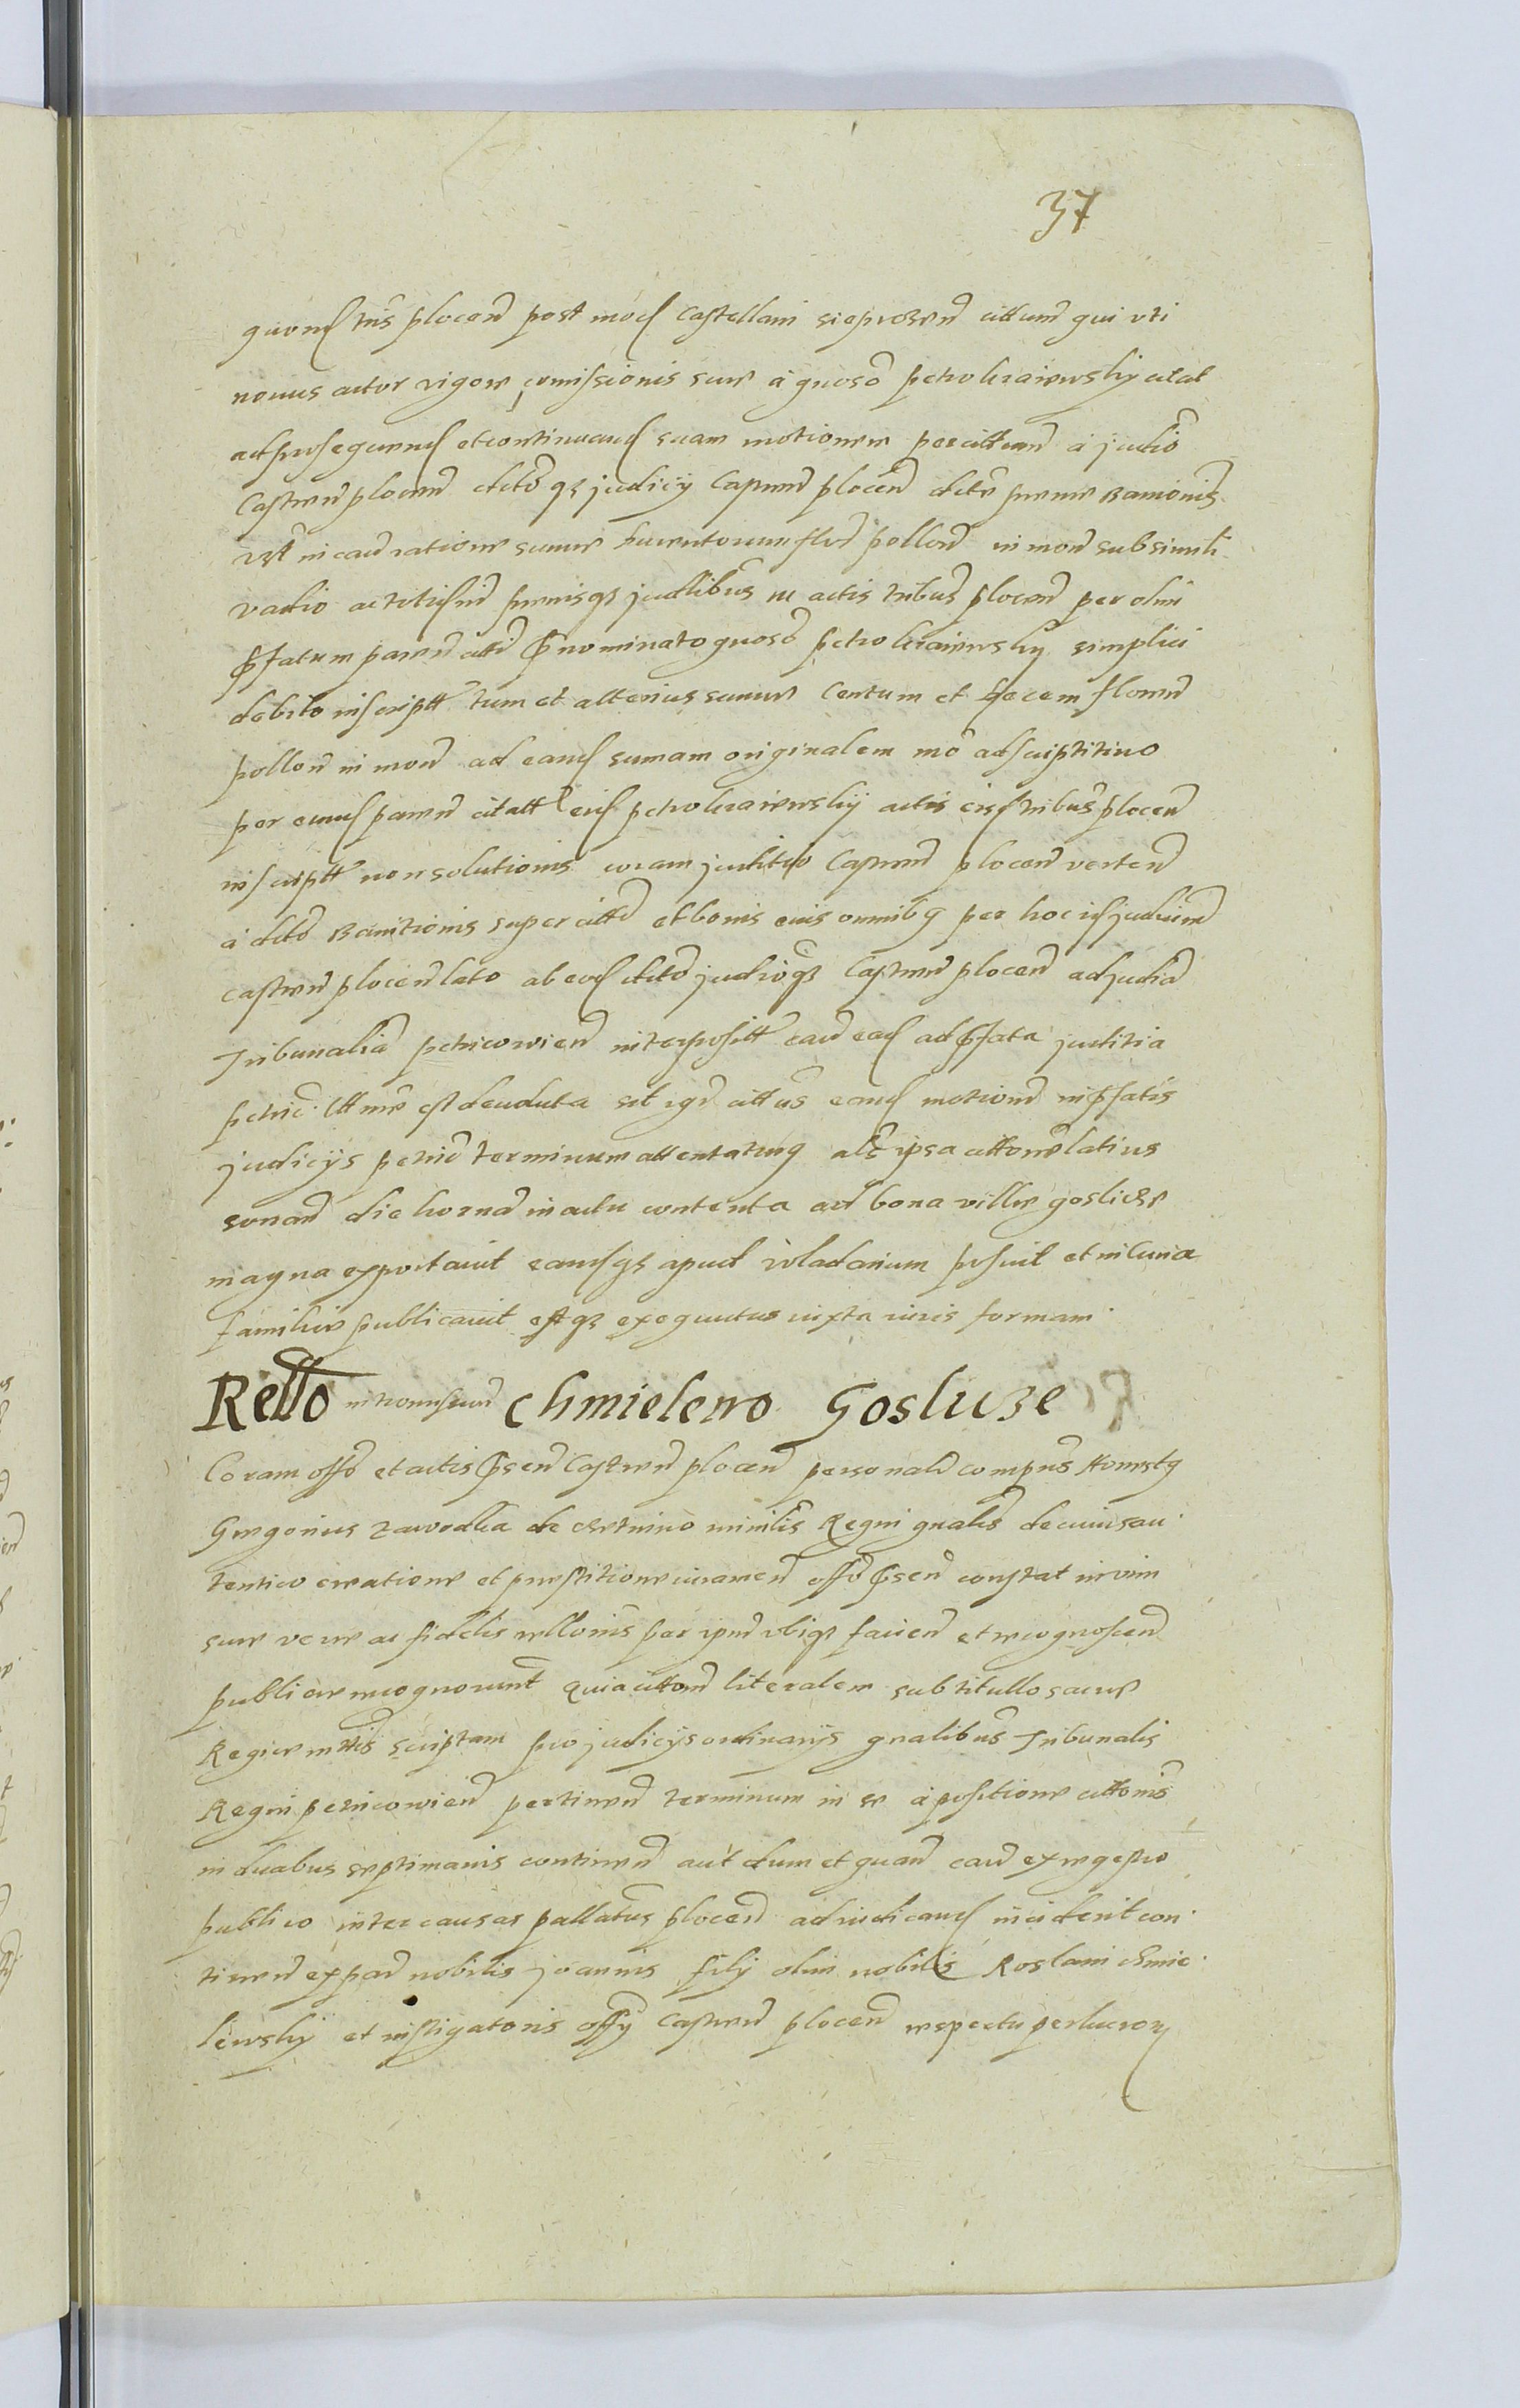 37
quond tns plocen post mod Castellani sieprcen cittum qui uti
novus actor vigore comissionis sue a gnoso petro kraiewsky citat
ad prosequend et continuand suam motionem per cittum a judio
Castren plocen dcto qz judicy Capnen plocen dcte pene Banionis
in ead ratione sume ducentorum flor pollon in mon sub simili
vadio actis judlibus in actis tribus plocen per olim
pfatum paren citti pnominato gnoso petro kraiewsky simplici
debito inscriptt tum et alterius sume Centum et decem floren
pollon in mon ad eand sumam originalem mo adscriptitivo
per eund paren citatt eid petro kraiewsky actis eisd tribus plocen
inscriptt non solutionis coram juditio Capnen plocen verten
a dcto Banitionis super citto et bonis eius omnibq per hoc id judicium
castren plocen lato ab eod dcto judicioqz Castren plocen ad judicia
Tribunalia petricovien interpositt ead ead ad pfata juditia
petric est devoluta sit igr cittus eand motionem in pfatis
judicijs petric terminum attentaturq als ipsa citto latius
sonan die horna in actu contenta ad bona ville goslicze
magna exportavit eandqz apud vladarium posuit et in curia
familie publicavit estqz exequutus iuxta iuris formam.
Rello chmielewo Goslicze
Coram offo et actis psen Castren plocen personalr compns Honestq
Gregorius zawodka de minilis Regni gnalis de cuius au
tentico creatione et prestitione iuramen offo psen constat in vim
sue vere ac fidelis rellonis per ipm ubiqz facien et recognoscen
publice recognovit quia citton literalem sub titullo sacre
Regie mttis scriptam pro judicijs ordinarijs gnalibus Tribunalis
Regni petricovien pertinen terminum in se a positione cittonis
in duabus septimanis continen aut dum et quan ead ex regestro
publico inter causas pallatus plocen ad iudicand inciderit con
tinen ex par nobilis joannis filij olim nobilis Roslani chmie
lewskij et instigatoris offy Castren plocen respectu perlucror